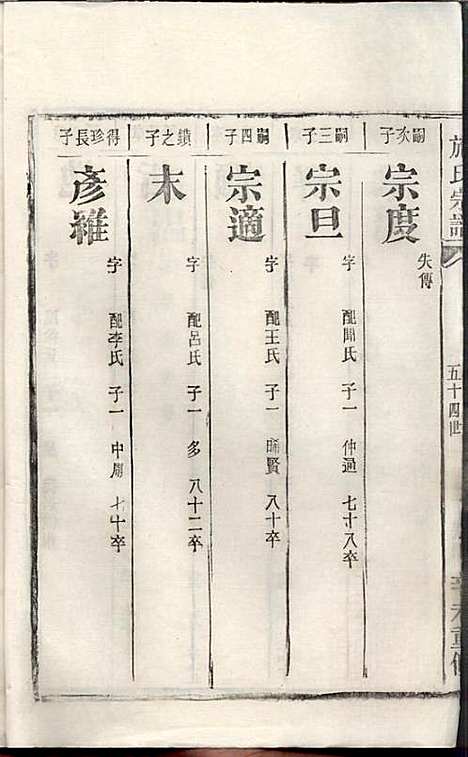 施氏宗譜
五十四世
嗣次子
宗度
失傳
嗣三子
宗旦
字 配聞氏 子一 仲通 七十八卒
嗣四子
宗適
字 配王氏 子一 賢 八十卒
鎮之子
末
字 配呂氏 子一 多 八十二卒
得珍長子
彥雍
字 配李氏 子一 中 七十卒